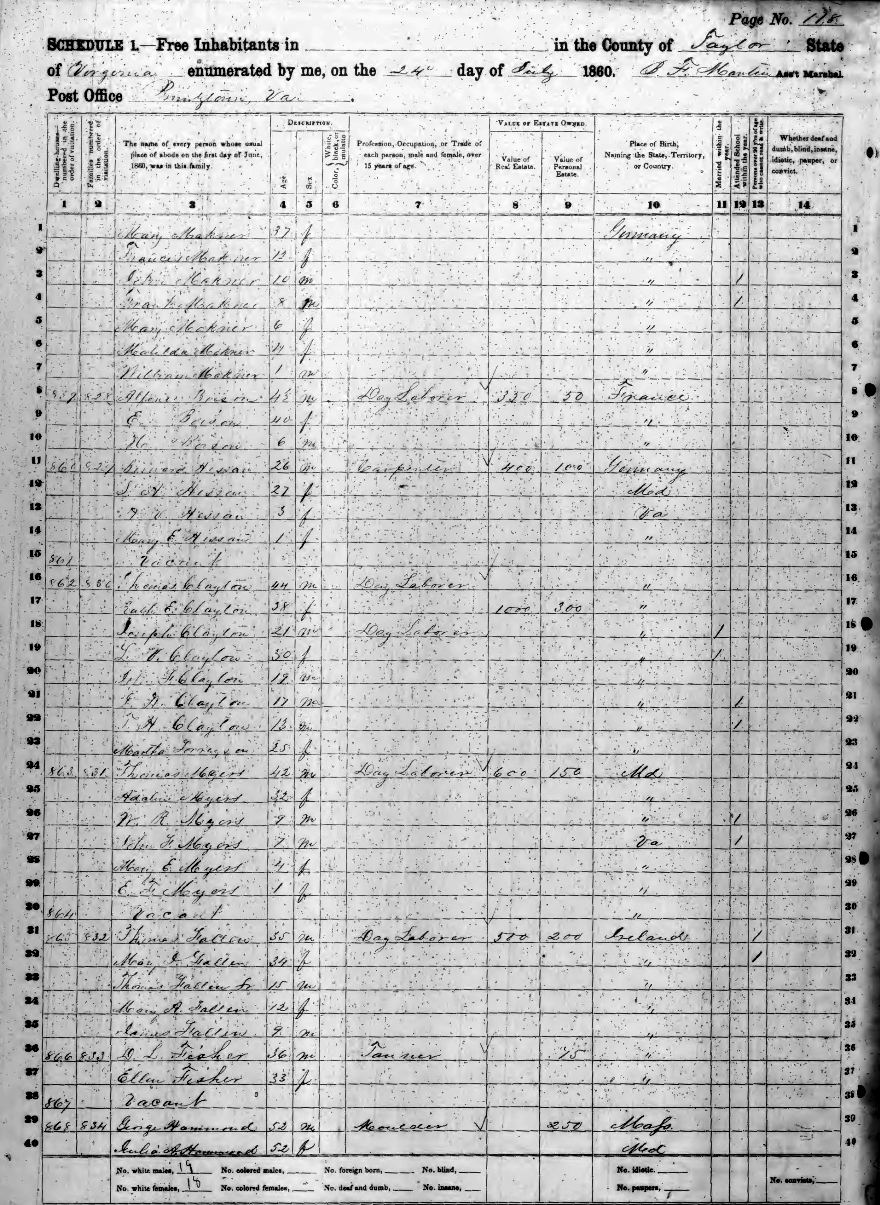 Page No. 118
SCHEDULE 1.—Free Inhabitants in in the County of Taylor State
of Virginia enumerated by me, on the 24 day of July 1860. Ass't Marshal
Post Office Pruntytown, Va.
DESCRIPTION. VALUE OF ESTATE OWNED.
Dwelling-houses—numbered in the order of visitation. Families numbered in the order of visitation. The name of every person whose usual place of abode on the first day of June, 1860, was in this family. Age Sex Color, White, black, or mulatto Profession, Occupation, or Trade of each person, male and female, over 15 years of age. Value of Real Estate. Value of Personal Estate. Place of Birth, Naming the State, Territory, or Country. Married within the year. Attended School within the year. Persons over 20 y'rs of age who cannot read & write. Whether deaf and dumb, blind, insane, idiotic, pauper, or convict.
1 2 3 4 5 6 7 8 9 10 11 12 13 14
1 Mary Makner 37 f Germany 1
2 Frances Makner 12 f " 2
3 Makner 10 m " 1 3
4 Frank Makner 8 m " 1 4
5 Mary Makner 6 f " 5
6 Matilda Makner 4 f " 6
7 William Makner 1 m " 7
8 828 m Day Laborer 350 50 France 8
9 E. 40 f " 9
10 6 m " 10
11 860 829 Hessan 26 m Carpenter 400 100 Germany 11
12 Hessan 27 f Md 12
13 A V Hessan 3 f Va 13
14 Mary E Hessan 1 f " 14
15 861 Vacant 15
16 862 830 Thomas Clayton 44 m Day Laborer " 16
17 E. Clayton 38 f 1000 300 " 17
18 Joseph Clayton 21 m Day Laborer " 1 18
19 L. V. Clayton 30 f " 1 19
20 F. Clayton 19 m " 20
21 Clayton 17 m " 1 21
22 T. H. Clayton 13 m " 1 22
23 Martha 25 f " 23
24 863 831 Thomas Myers 42 m Day Laborer 600 150 Md 24
25 Adaline Myers 32 f " 25
26 W. R. Myers 9 m " 1 26
27 John F. Myers 7 m Va 1 27
28 Mary E. Myers 4 f " 28
29 E. F. Myers 1 f " 29
30 864 Vacant " 30
31 865 832 Thomas Fallen 35 m Day Laborer 500 200 Ireland 1 31
32 Mary Fallen 34 f " 1 32
33 Thomas Fallen Jr 15 m " 33
34 Mary A. Fallen 12 f " 34
35 James Fallen 9 m " 35
36 866 833 D. L. Fisher 36 m Tanner 75 " 36
37 Ellen Fisher 33 f " 37
38 867 Vacant 38
39 868 834 George Hammond 52 m Moulder 250 Mass 39
40 Julia A Hammond 52 f Md 40
No. white males, 19 No. colored males, No. foreign born, No. blind, No. idiotic,
No. white females, 18 No. colored females, No. deaf and dumb, No. insane, No. paupers, No. convicts,